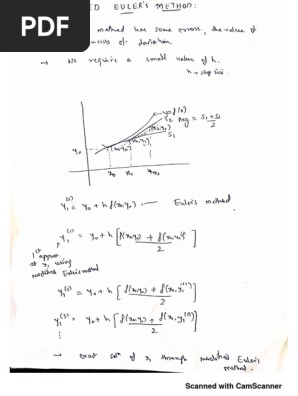 PDF
ED EULER'S METHOD:
method has some errors, the value of
of deviation
→ We require a small value of h.
h → step size
y = f(x)
S2 Avg = S1+S2/2
S1
(x1,y1)
(x0,y0)
y0
x0 x1
y1(0) = y0 + h f(x0,y0) — Euler's method
y1(1) = y0 + h [ f(x0,y0) + f(x1,y1(0)) / 2 ]
1st approx.
at x1 using
Modified Euler's method
y1(2) = y0 + h [ f(x0,y0) + f(x1,y1(1)) / 2 ]
y1(3) = y0 + h [ f(x0,y0) + f(x1,y1(2)) / 2 ]
⋮
→ exact soln of x1 through Modified Euler's
method.
Scanned with CamScanner